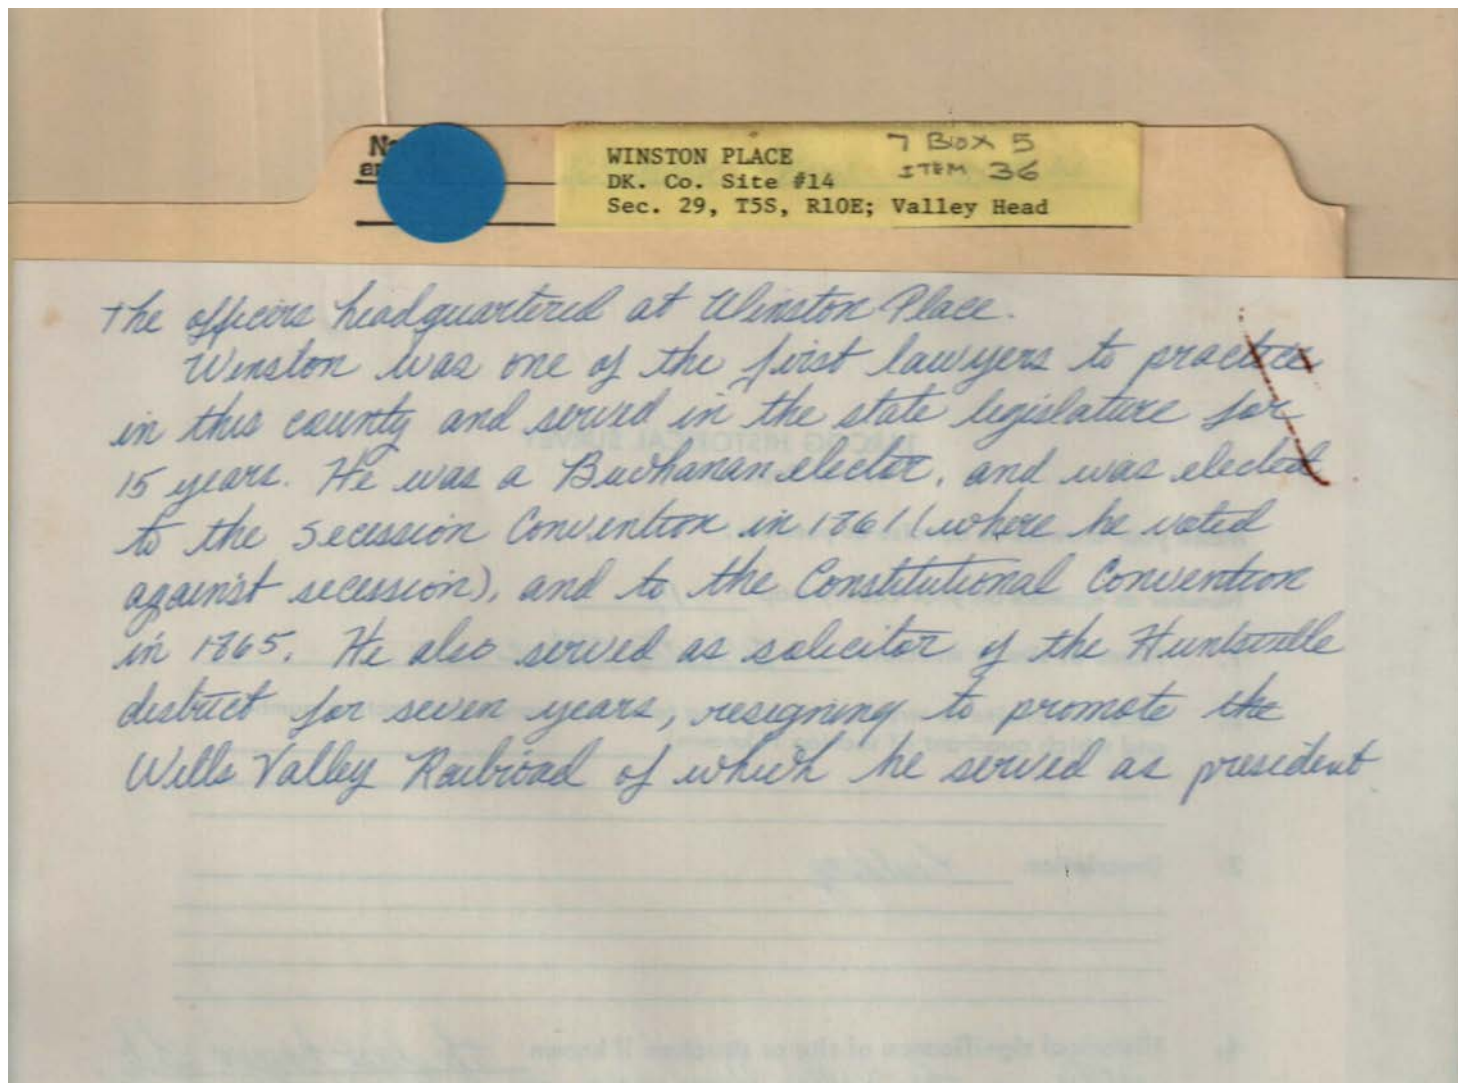 WINSTON PLACE 7 BOX 5
DK. Co. Site #14 ITEM 36
Sec. 29, T5S, R10E; Valley Head
the officers headquartered at Winston Place.
Winston was one of the first lawyers to practice
in this county and served in the state legislature for
15 years. He was a Buchanan elector, and was elected
to the Secession Convention in 1861 (where he voted
against secession), and to the Constitutional Convention
in 1865. He also served as solicitor of the Huntsville
district for seven years, resigning to promote the
Wills Valley Railroad of which he served as president